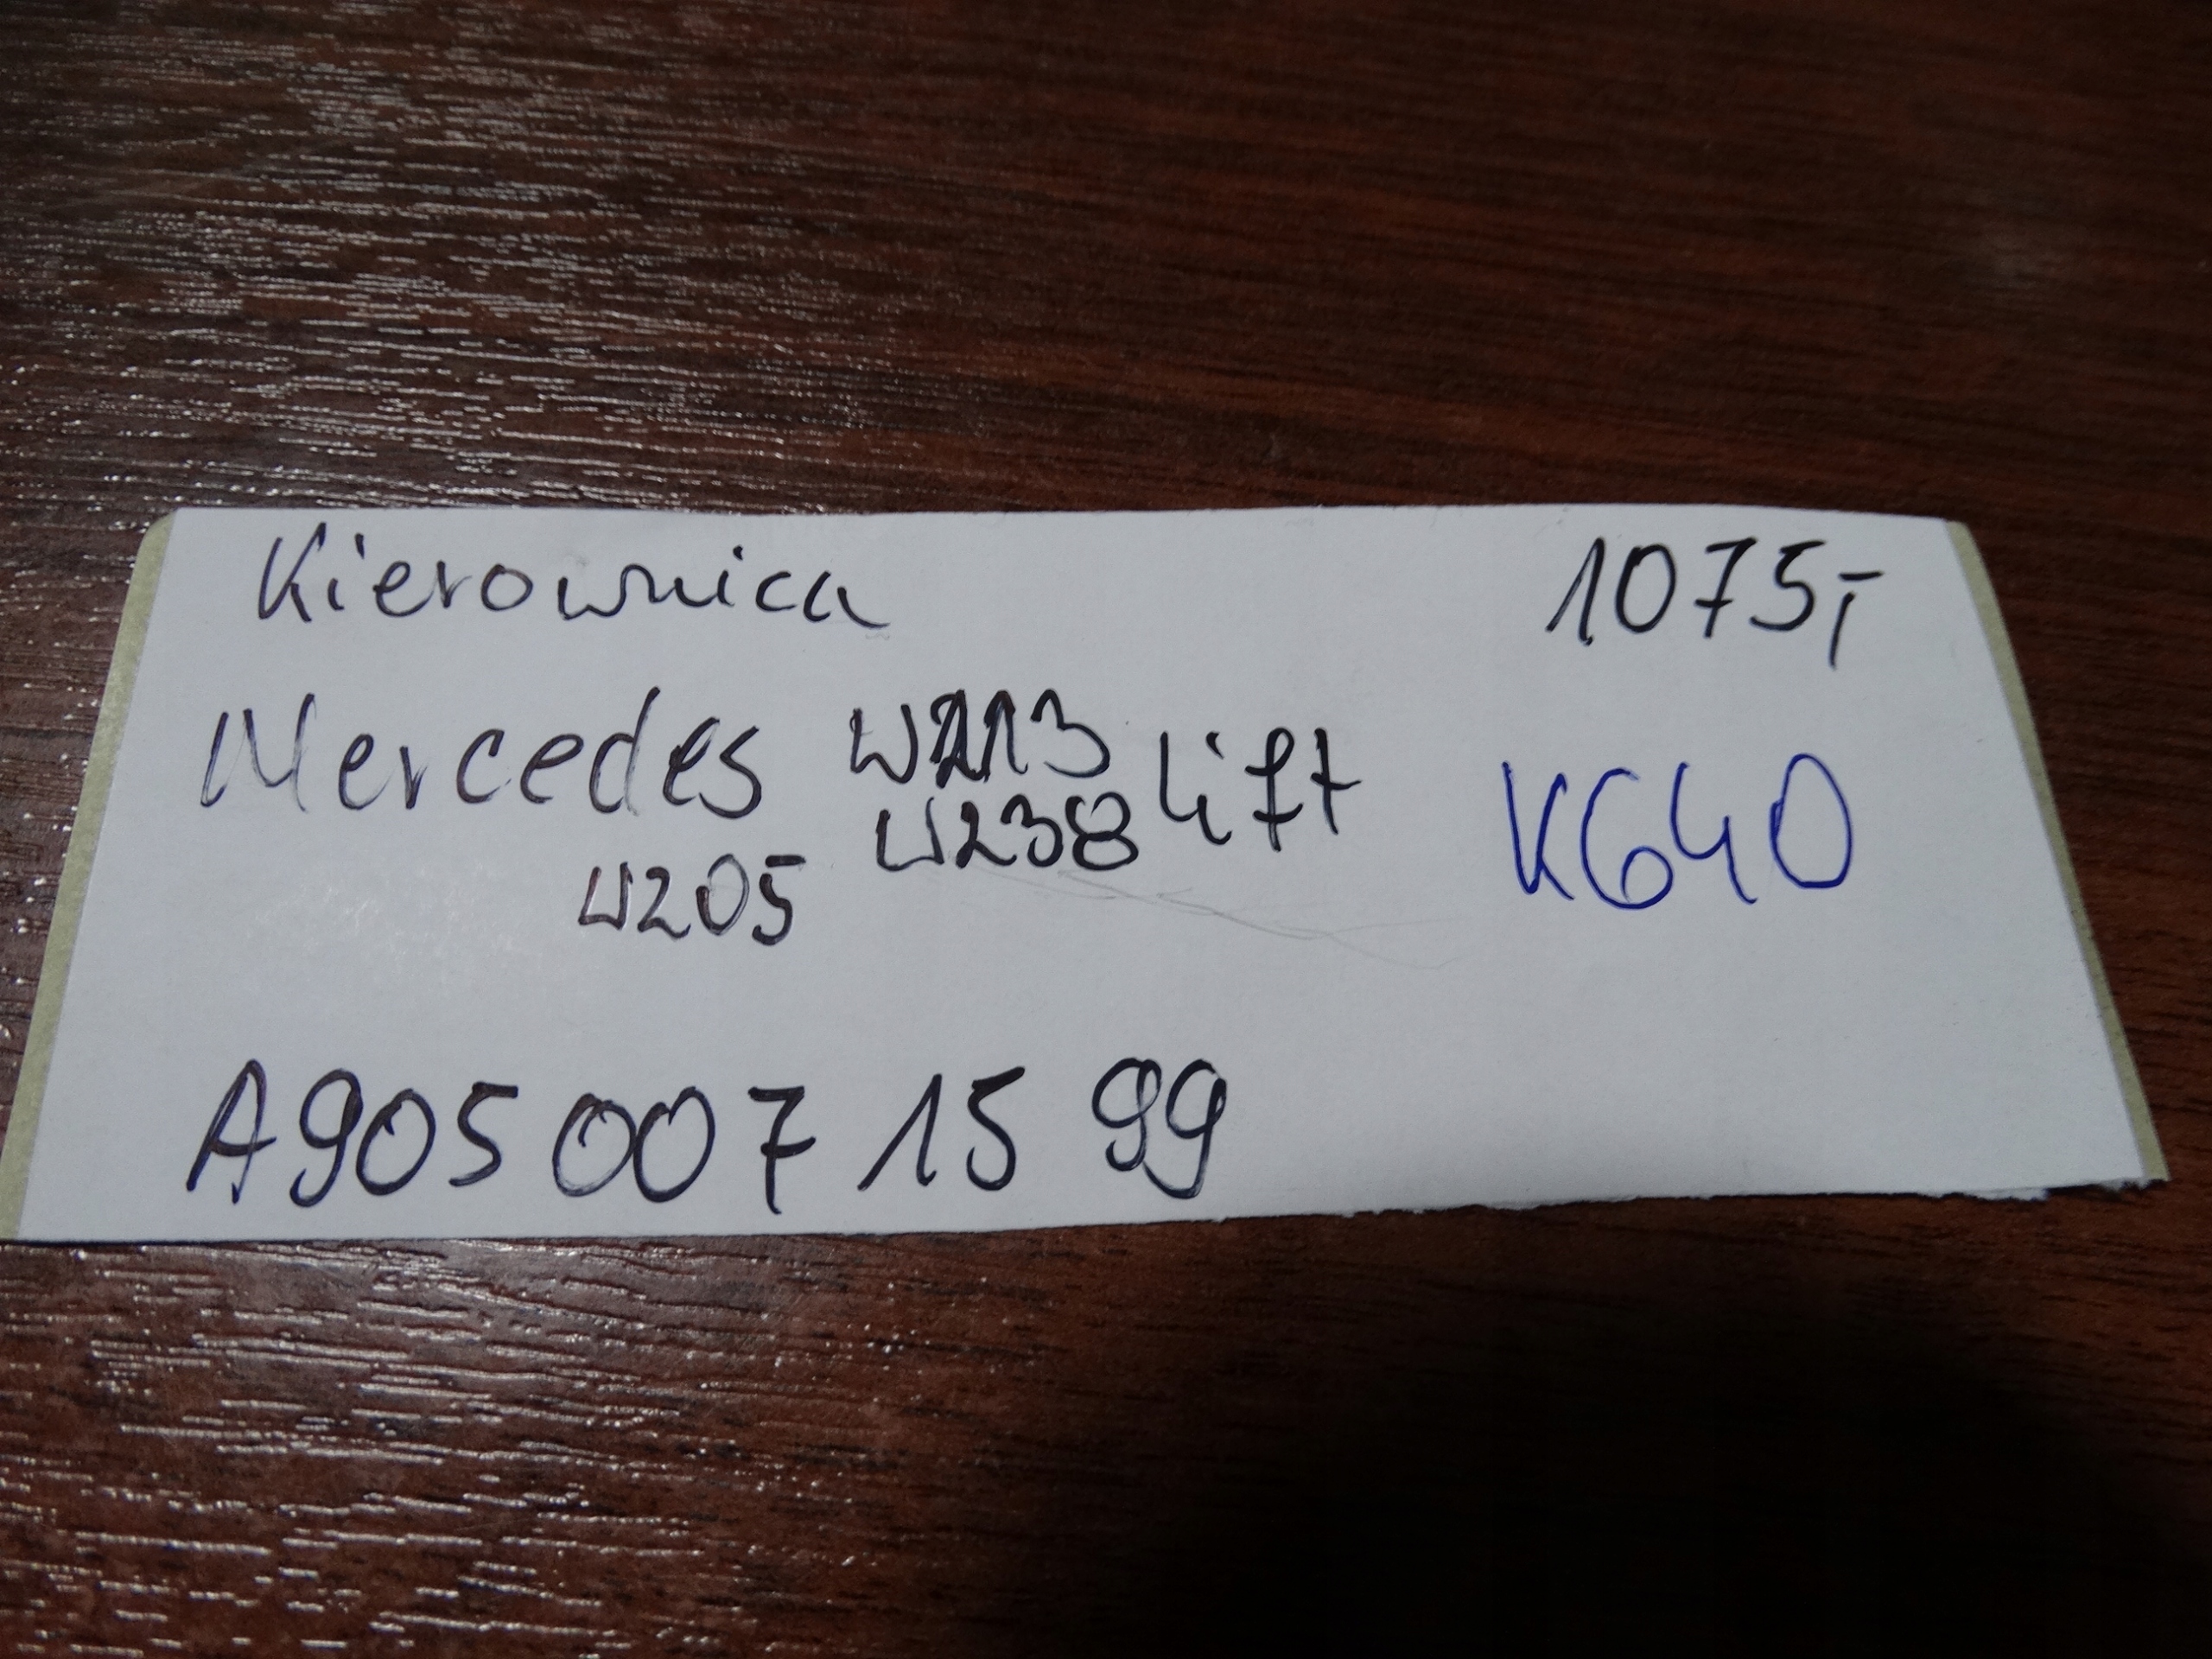 Kierownica 1075,-
Mercedes W213 lift K640
W238
W205
A905 007 15 99